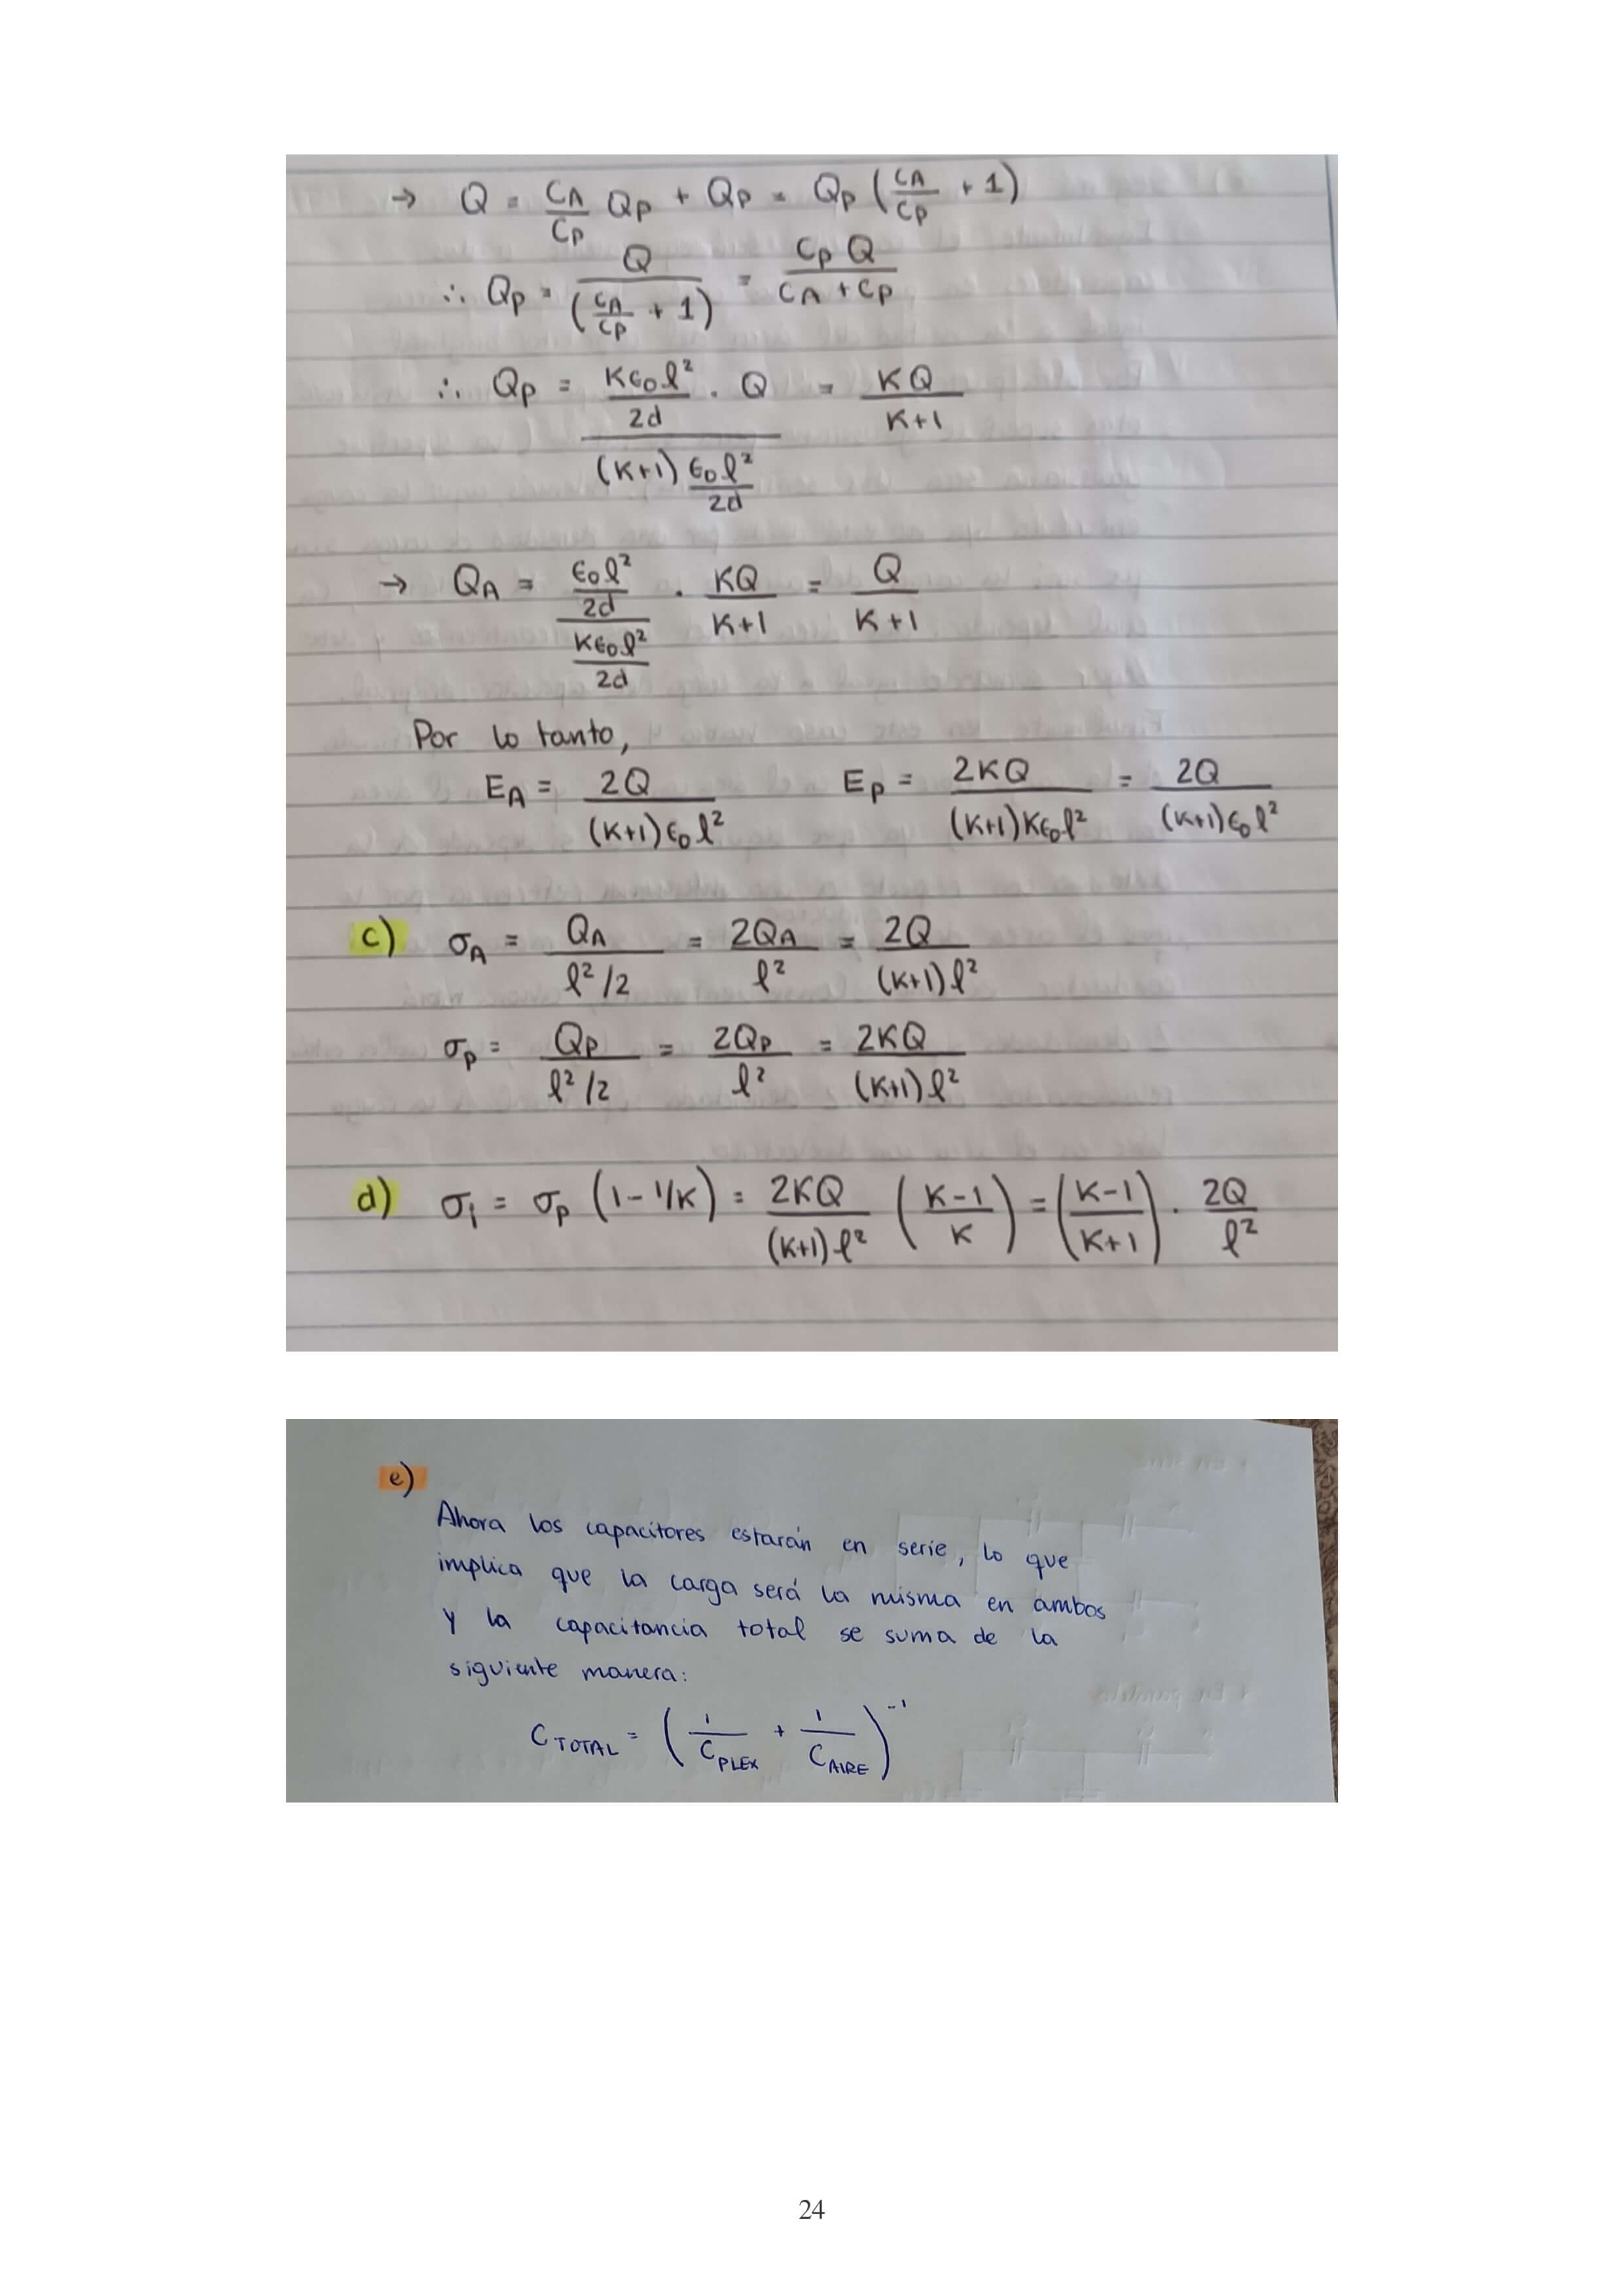 → Q = C_A/C_P Q_P + Q_P = Q_P (C_A/C_P + 1)
∴ Q_P = Q/(C_A/C_P + 1) = C_P Q/(C_A + C_P)
∴ Q_P = (Kε₀ℓ²/2d · Q)/((K+1) ε₀ℓ²/2d) = KQ/(K+1)
→ Q_A = (ε₀ℓ²/2d)/(Kε₀ℓ²/2d) · KQ/(K+1) = Q/(K+1)
Por lo tanto,
E_A = 2Q/((K+1)ε₀ℓ²) E_P = 2KQ/((K+1)Kε₀ℓ²) = 2Q/((K+1)ε₀ℓ²)
c) σ_A = Q_A/(ℓ²/2) = 2Q_A/ℓ² = 2Q/((K+1)ℓ²)
σ_P = Q_P/(ℓ²/2) = 2Q_P/ℓ² = 2KQ/((K+1)ℓ²)
d) σ_i = σ_P (1 - 1/K) = 2KQ/((K+1)ℓ²) ((K-1)/K) = ((K-1)/(K+1)) · 2Q/ℓ²
e)
Ahora los capacitores estarán en serie, lo que
implica que la carga será la misma en ambos
y la capacitancia total se suma de la
siguiente manera:
C_TOTAL = (1/C_PLEX + 1/C_AIRE)⁻¹
24